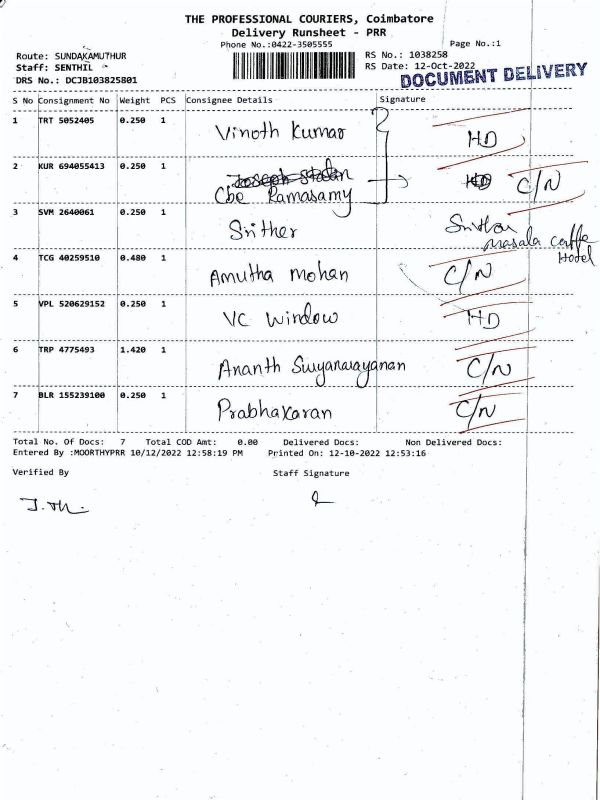 THE PROFESSIONAL COURIERS, Coimbatore
Delivery Runsheet - PRR
Phone No.:0422-3505555
Page No.:1
Route: SUNDAKAMUTHUR
RS No.: 1038258
Staff: SENTHIL
RS Date: 12-Oct-2022
DRS No.: DCJB103825801
DOCUMENT DELIVERY
S No Consignment No Weight PCS Consignee Details Signature
1 TRT 5052405 0.250 1 Vinoth Kumar HD
2 KUR 694055413 0.250 1 Joseph Stalan HD C/N
Cbe Ramasamy
3 SVM 2640061 0.250 1 Srither
masala caffe
Hotel
4 TCG 40259510 0.480 1 Amutha mohan C/N
5 VPL 520629152 0.250 1 VC Window HD
6 TRP 4775493 1.420 1 Ananth Suyanarayanan C/N
7 BLR 155239100 0.250 1 Prabhakaran C/N
Total No. Of Docs: 7 Total COD Amt: 0.00 Delivered Docs: Non Delivered Docs:
Entered By :MOORTHYPRR 10/12/2022 12:58:19 PM Printed On: 12-10-2022 12:53:16
Verified By Staff Signature